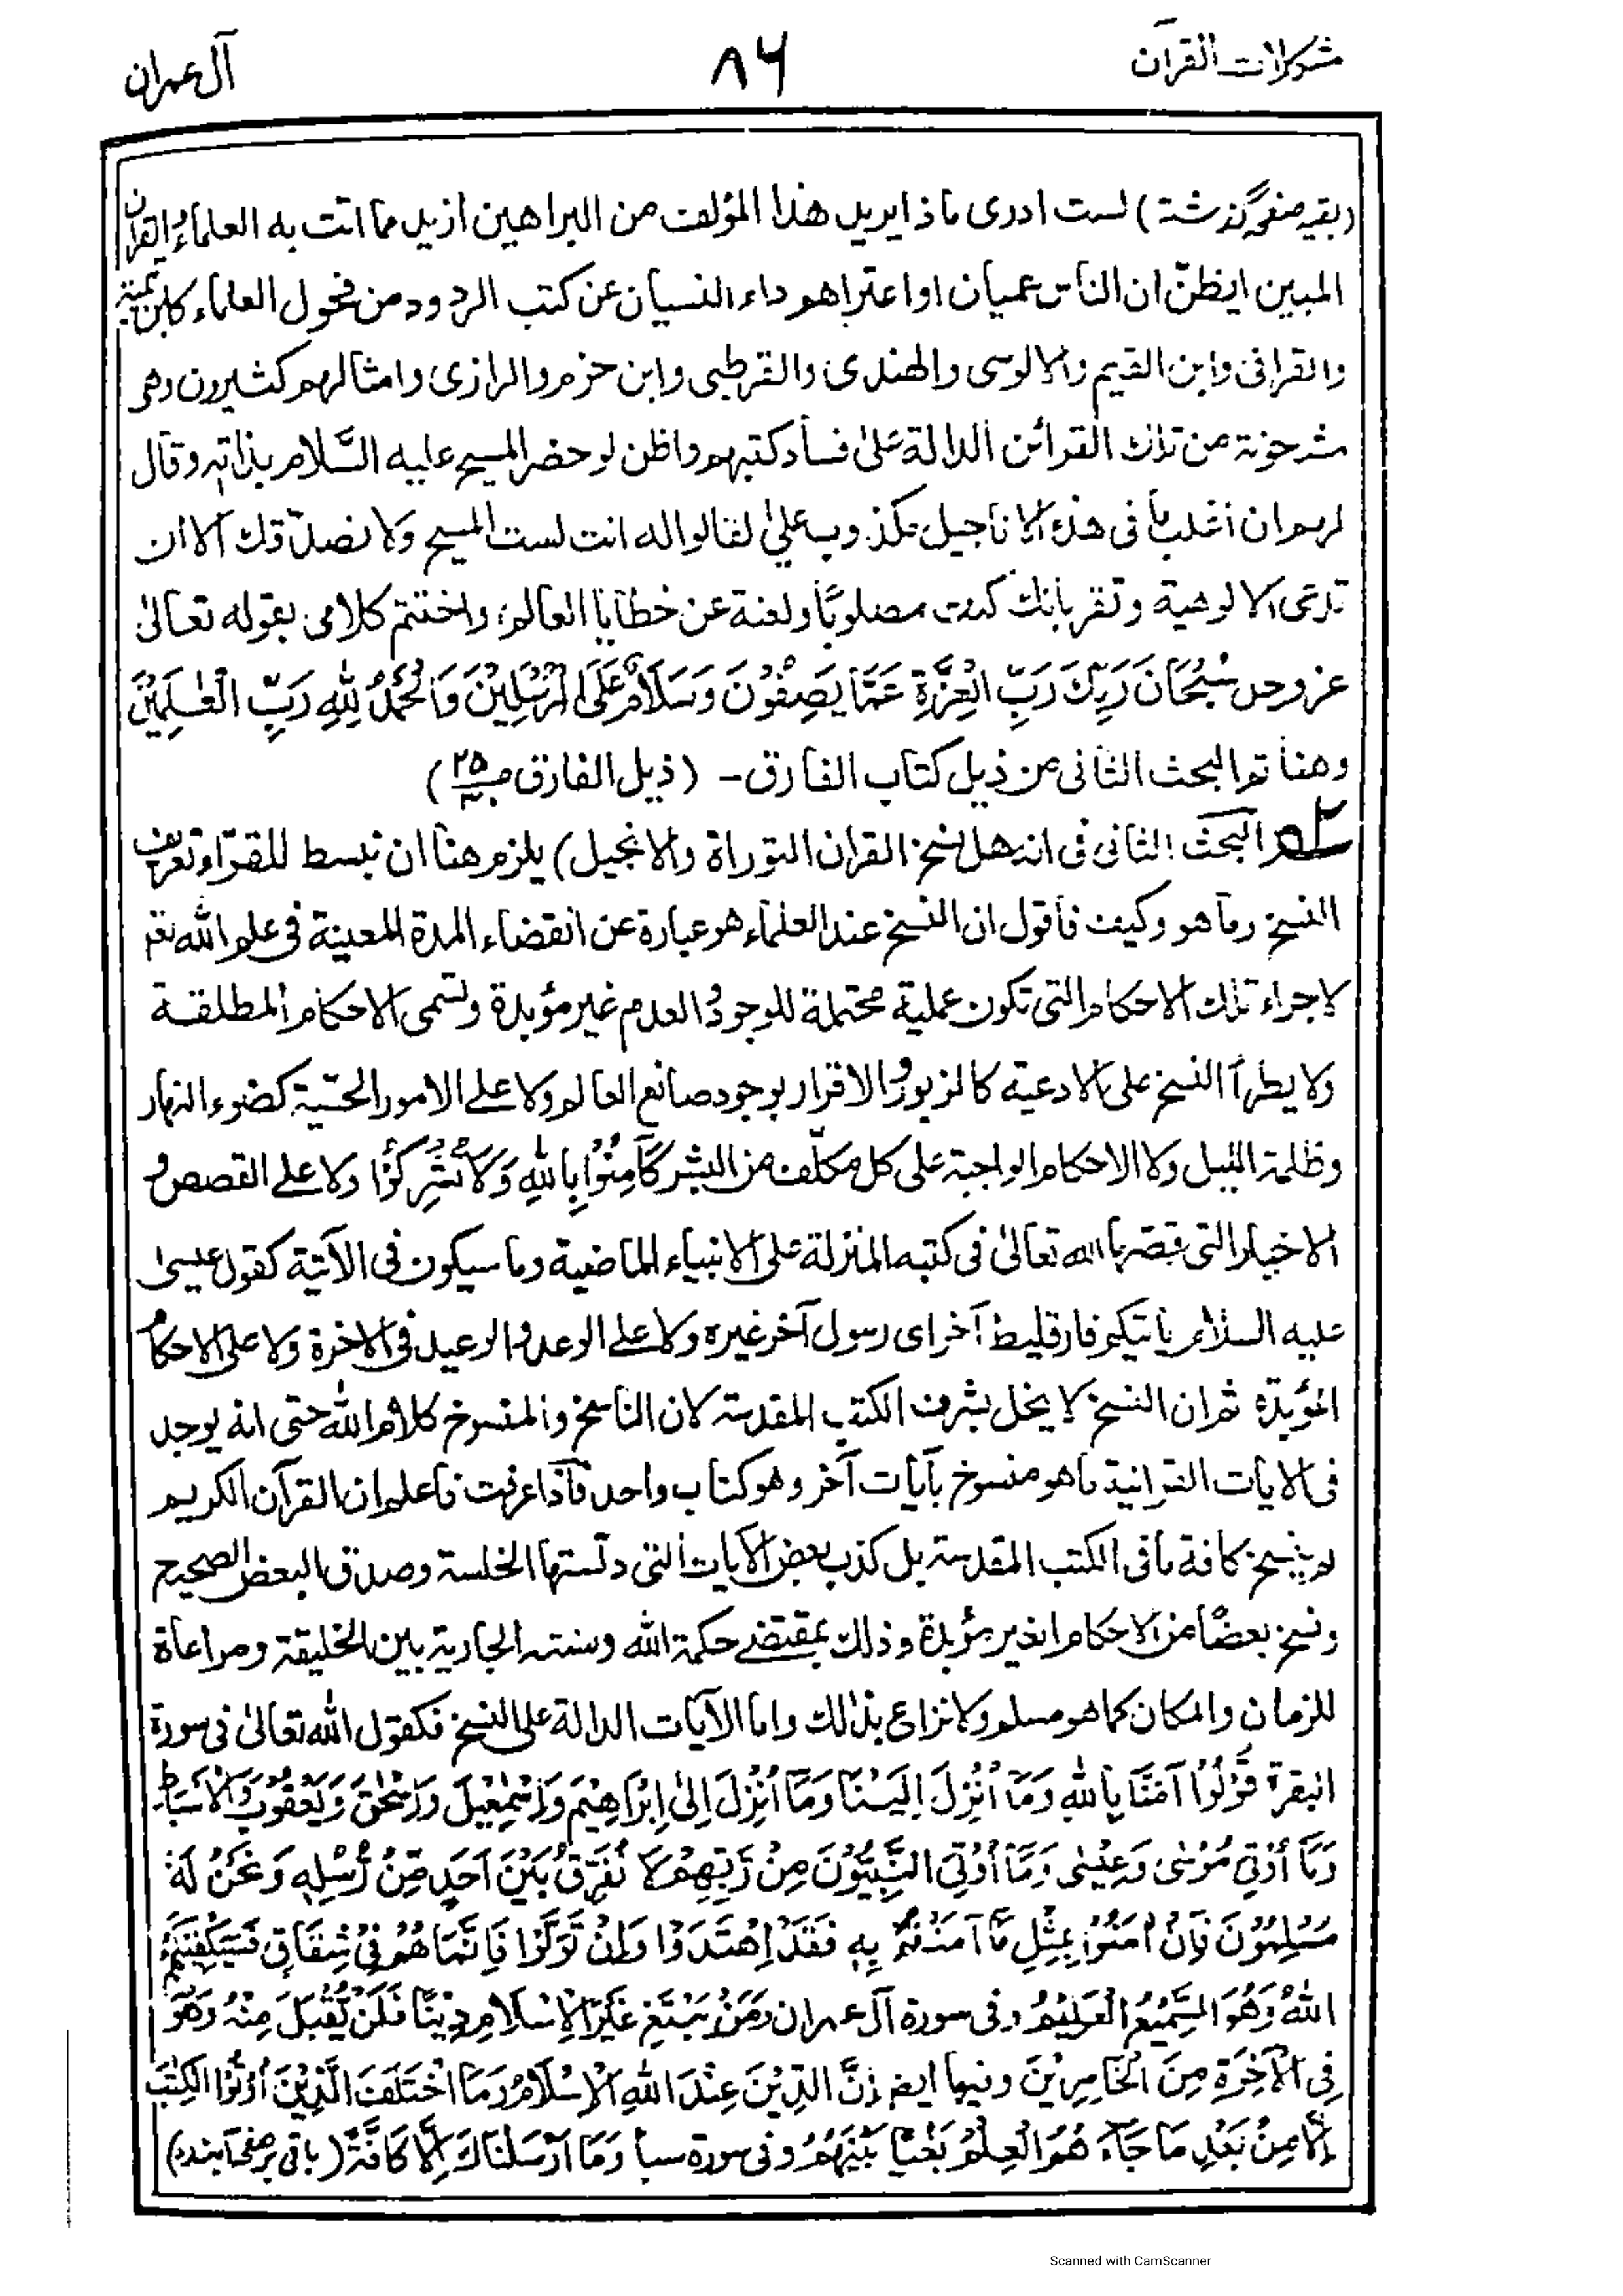 مشكلات القرآن
٨٦
آل عمران
(بقیہ صفحہ گذشتہ) لست ادرى ماذا يريد هذا المؤلف من البراهين ازيد مما اتت به العلماء والقرآن
المبين ايظنّ ان الناس عميان او اعتراهم داء النسيان عن كتب الردود من فحول العلماء كابن تيمية
والقرافى وابن القيم والالوسى والهندى والقرطبى وابن حزم والرازى وامثالهم كثيرون وهى
مشحونة من تلك القرائن الدالة على فساد كتبهم واظن لو حضر المسيح عليه السّلام بذاته وقال
لهم ان اغلب ما فى هذه الاناجيل مكذوب علىّ لقالوا له انت لست المسيح ولا نصدّقك الا ان
تدّعى الالوهية وتقر بانك كنت مصلوبًا ولعنة عن خطايا العالم، واختتم كلامى بقوله تعالىٰ
عز وجل سُبْحَانَ رَبِّكَ رَبِّ الْعِزَّةِ عَمَّا يَصِفُوْنَ وَسَلَامٌ عَلَى الْمُرْسَلِيْنَ وَالْحَمْدُ لِلّٰهِ رَبِّ الْعٰلَمِيْنَ
وهنا تم البحث الثانى من ذيل كتاب الفارق - (ذيل الفارق صـ ٢٥)
البحث الثانى فى انه هل نسخ القران التوراة والانجيل) يلزم هنا ان نبسط للقرّاء تعريف
النسخ وما هو وكيف فاقول ان النسخ عند العلماء هو عبارة عن انقضاء المدة المعينة فى علم الله تعم
لاجراء تلك الاحكام التى تكون عملية محتملة للوجود والعدم غير مؤبدة وتسمى الاحكام المطلقة
ولا يطرأ النسخ على الادعية كالزبور والاقرار بوجود صانع العالم ولا على الامور الحسّية كضوء النهار
وظلمة الليل ولا الاحكام الواجبة على كل مكلّف من البشر كَآمِنُوْا بِاللهِ وَلَا تُشْرِكُوْا ولا على القصص و
الاخبار التى قصّها الله تعالىٰ فى كتبه المنزلة على الانبياء الماضية وما سيكون فى الآتية كقول عيسىٰ
عليه السلام يأتيكم فارقليط آخر اى رسول آخر غيره ولا على الوعد والوعيد فى الاخرة ولا على الاحكام
المؤبدة ثم ان النسخ لا يخل بشرف الكتب المقدسة لان الناسخ والمنسوخ كلام الله حتى انه يوجد
فى الايات القرانية ما هو منسوخ بآيات آخر وهو كتاب واحد فاذا عرفت فاعلم ان القرآن الكريم
لم ينسخ كافة ما فى الكتب المقدسة بل كذب بعض الآيات التى دلستها الخلسة وصدق البعض الصحيح
ونسخ بعضًا من الاحكام الغير مؤبدة وذلك بمقتضى حكمة الله وسنته الجارية بين الخليقة ومراعاة
للزمان والمكان كما هو مسلم ولا نزاع بذلك واما الآيات الدالة على النسخ فكقول الله تعالىٰ فى سورة
البقرة قُوْلُوْا آمَنَّا بِاللهِ وَمَا أُنْزِلَ اِلَيْنَا وَمَا أُنْزِلَ اِلىٰ اِبْرَاهِيْمَ وَاِسْمٰعِيْلَ وَاِسْحٰقَ وَيَعْقُوْبَ وَالْاَسْبَاطِ
وَمَا أُوْتِيَ مُوْسٰى وَعِيْسٰى وَمَا أُوْتِيَ النَّبِيُّوْنَ مِنْ رَبِّهِمْ لَا نُفَرِّقُ بَيْنَ اَحَدٍ مِّنْ رُسُلِهٖ وَنَحْنُ لَهٗ
مُسْلِمُوْنَ فَاِنْ اٰمَنُوْا بِمِثْلِ مَا آمَنْتُمْ بِهٖ فَقَدْ اِهْتَدَوْا وَاِنْ تَوَلَّوْا فَاِنَّمَا هُمْ فِيْ شِقَاقٍ فَسَيَكْفِيْكَهُمُ
اللهُ وَهُوَ السَّمِيْعُ الْعَلِيْمُ وفى سورة آل عمران وَمَنْ يَبْتَغِ غَيْرَ الْاِسْلَامِ دِيْنًا فَلَنْ يُّقْبَلَ مِنْهُ وَهُوَ
فِى الْآخِرَةِ مِنَ الْخَاسِرِيْنَ وفيها ايضا اِنَّ الدِّيْنَ عِنْدَ اللهِ الْاِسْلَامُ وَمَا اخْتَلَفَ الَّذِيْنَ أُوْتُوا الْكِتٰبَ
اِلَّا مِنْ بَعْدِ مَا جَاءَ هُمُ الْعِلْمُ بَغْيًا بَيْنَهُمْ وفى سورة سبأ وَمَا اَرْسَلْنَاكَ اِلَّا كَافَّةً (باقى بر صفحہ آينده)
Scanned with CamScanner